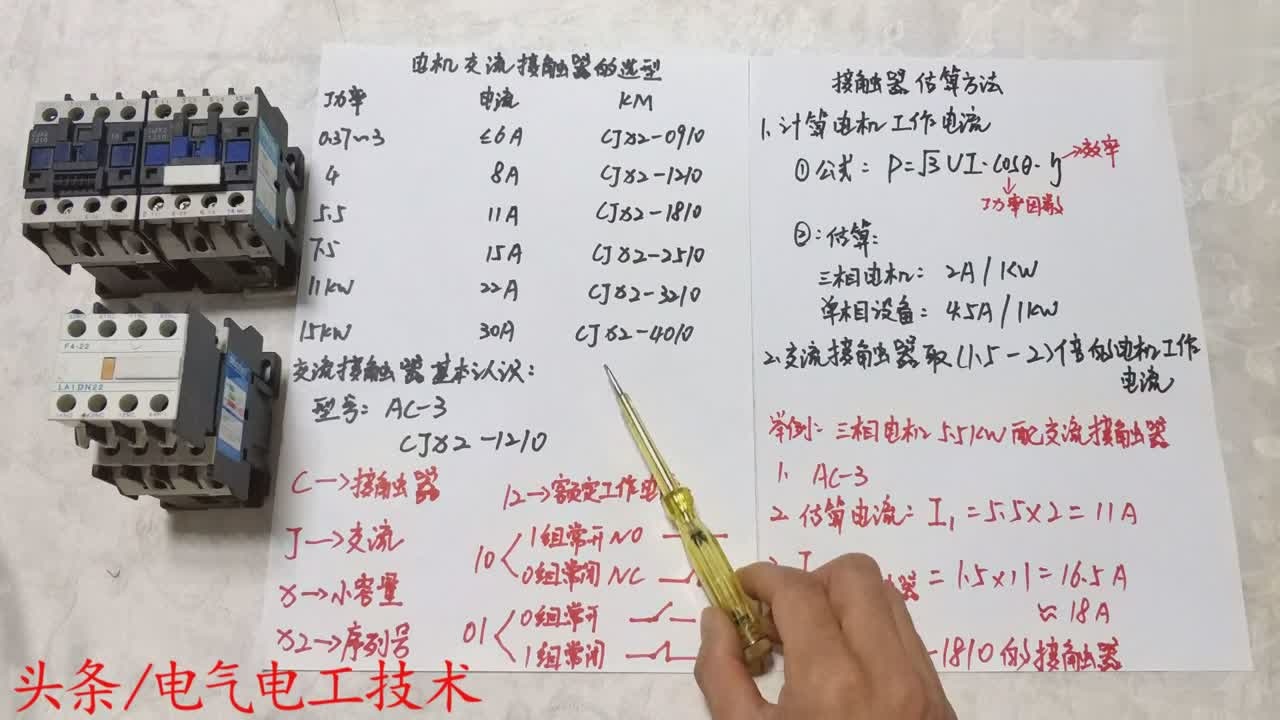 电机交流接触器的选型
功率 电流 KM
0.37~3 ≤6A CJX2-0910
4 8A CJX2-1210
5.5 11A CJX2-1810
7.5 15A CJX2-2510
11KW 22A CJX2-3210
15KW 30A CJX2-4010
交流接触器基本认识:
型号: AC-3
CJX2-1210
C→接触器
J→交流
X→小容量
X2→序列号
12→额定工作电
10 1组常开 NO
0组常闭 NC
01 0组常开
1组常闭
接触器估算方法
1. 计算电机工作电流
①公式: P=√3UI·cosθ·η→效率
↓
功率因数
②:估算:
三相电机: 2A/1KW
单相设备: 4.5A/1KW
2.交流接触器取(1.5-2)倍的电机工作
电流
举例: 三相电机5.5KW配交流接触器
1. AC-3
2. 估算电流: I₁=5.5×2=11A
3. I
器=1.5×11=16.5A
≈18A
-1810的接触器
F4-22
LA1DN22
头条/电气电工技术